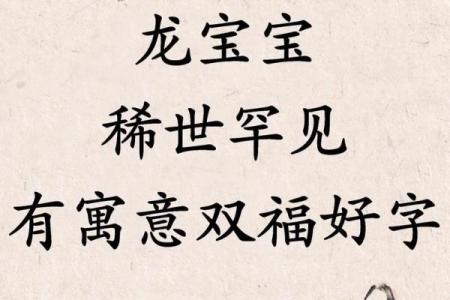 龙宝宝
稀世罕见
有寓意双福好字